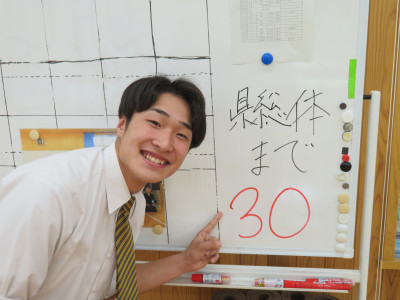 県総体
まで
30